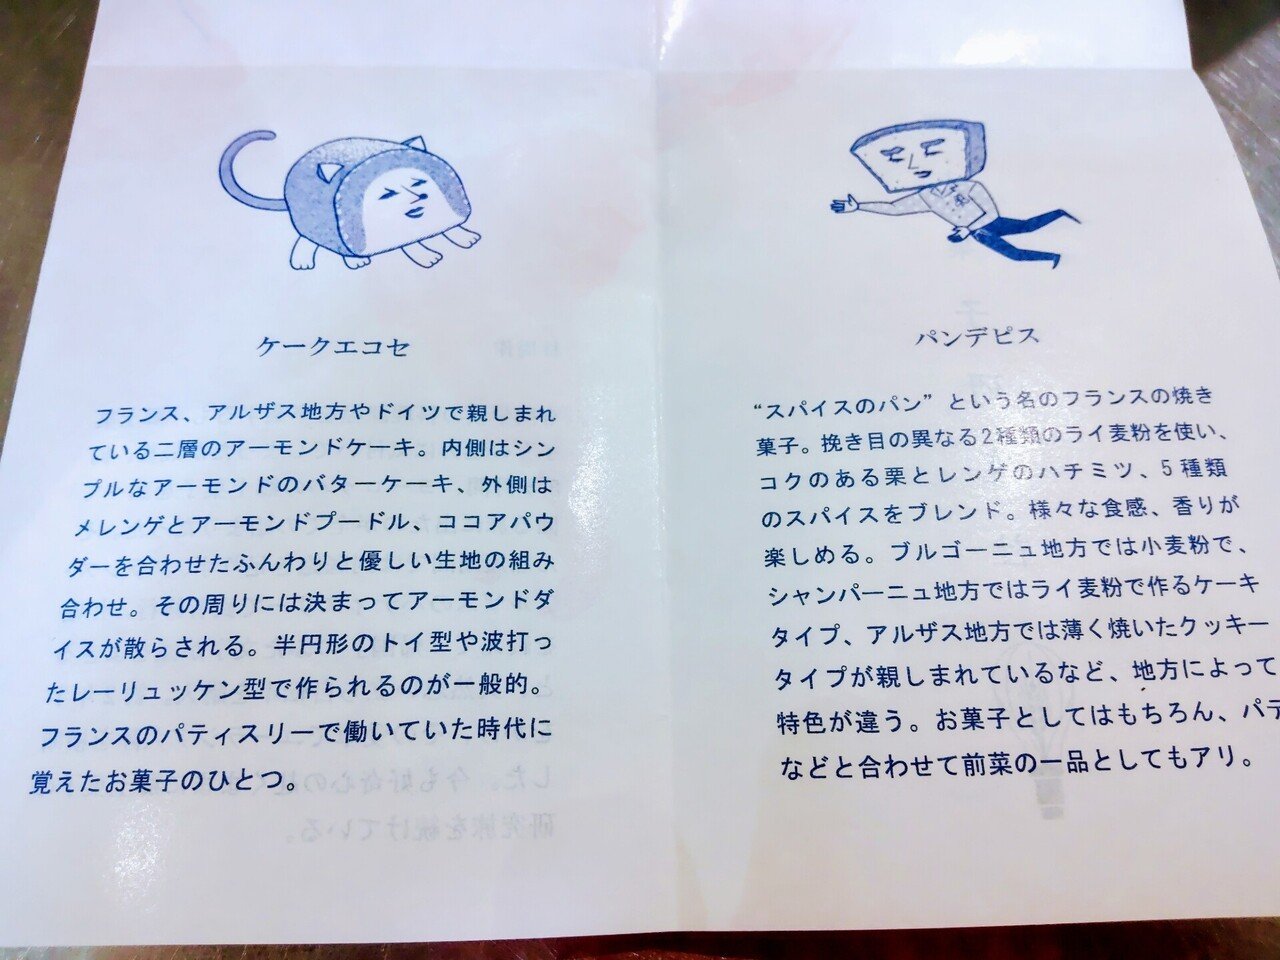 ケークエコセ
フランス、アルザス地方やドイツで親しまれ
ている二層のアーモンドケーキ。内側はシン
プルなアーモンドのバターケーキ、外側は
メレンゲとアーモンドプードル、ココアパウ
ダーを合わせたふんわりと優しい生地の組み
合わせ。その周りには決まってアーモンドダ
イスが散らされる。半円形のトイ型や波打っ
たレーリュッケン型で作られるのが一般的。
フランスのパティスリーで働いていた時代に
覚えたお菓子のひとつ。
パンデピス
“スパイスのパン”という名のフランスの焼き
菓子。挽き目の異なる2種類のライ麦粉を使い、
コクのある栗とレンゲのハチミツ、5種類
のスパイスをブレンド。様々な食感、香りが
楽しめる。ブルゴーニュ地方では小麦粉で、
シャンパーニュ地方ではライ麦粉で作るケーキ
タイプ、アルザス地方では薄く焼いたクッキー
タイプが親しまれているなど、地方によって
特色が違う。お菓子としてはもちろん、パテ
などと合わせて前菜の一品としてもアリ。